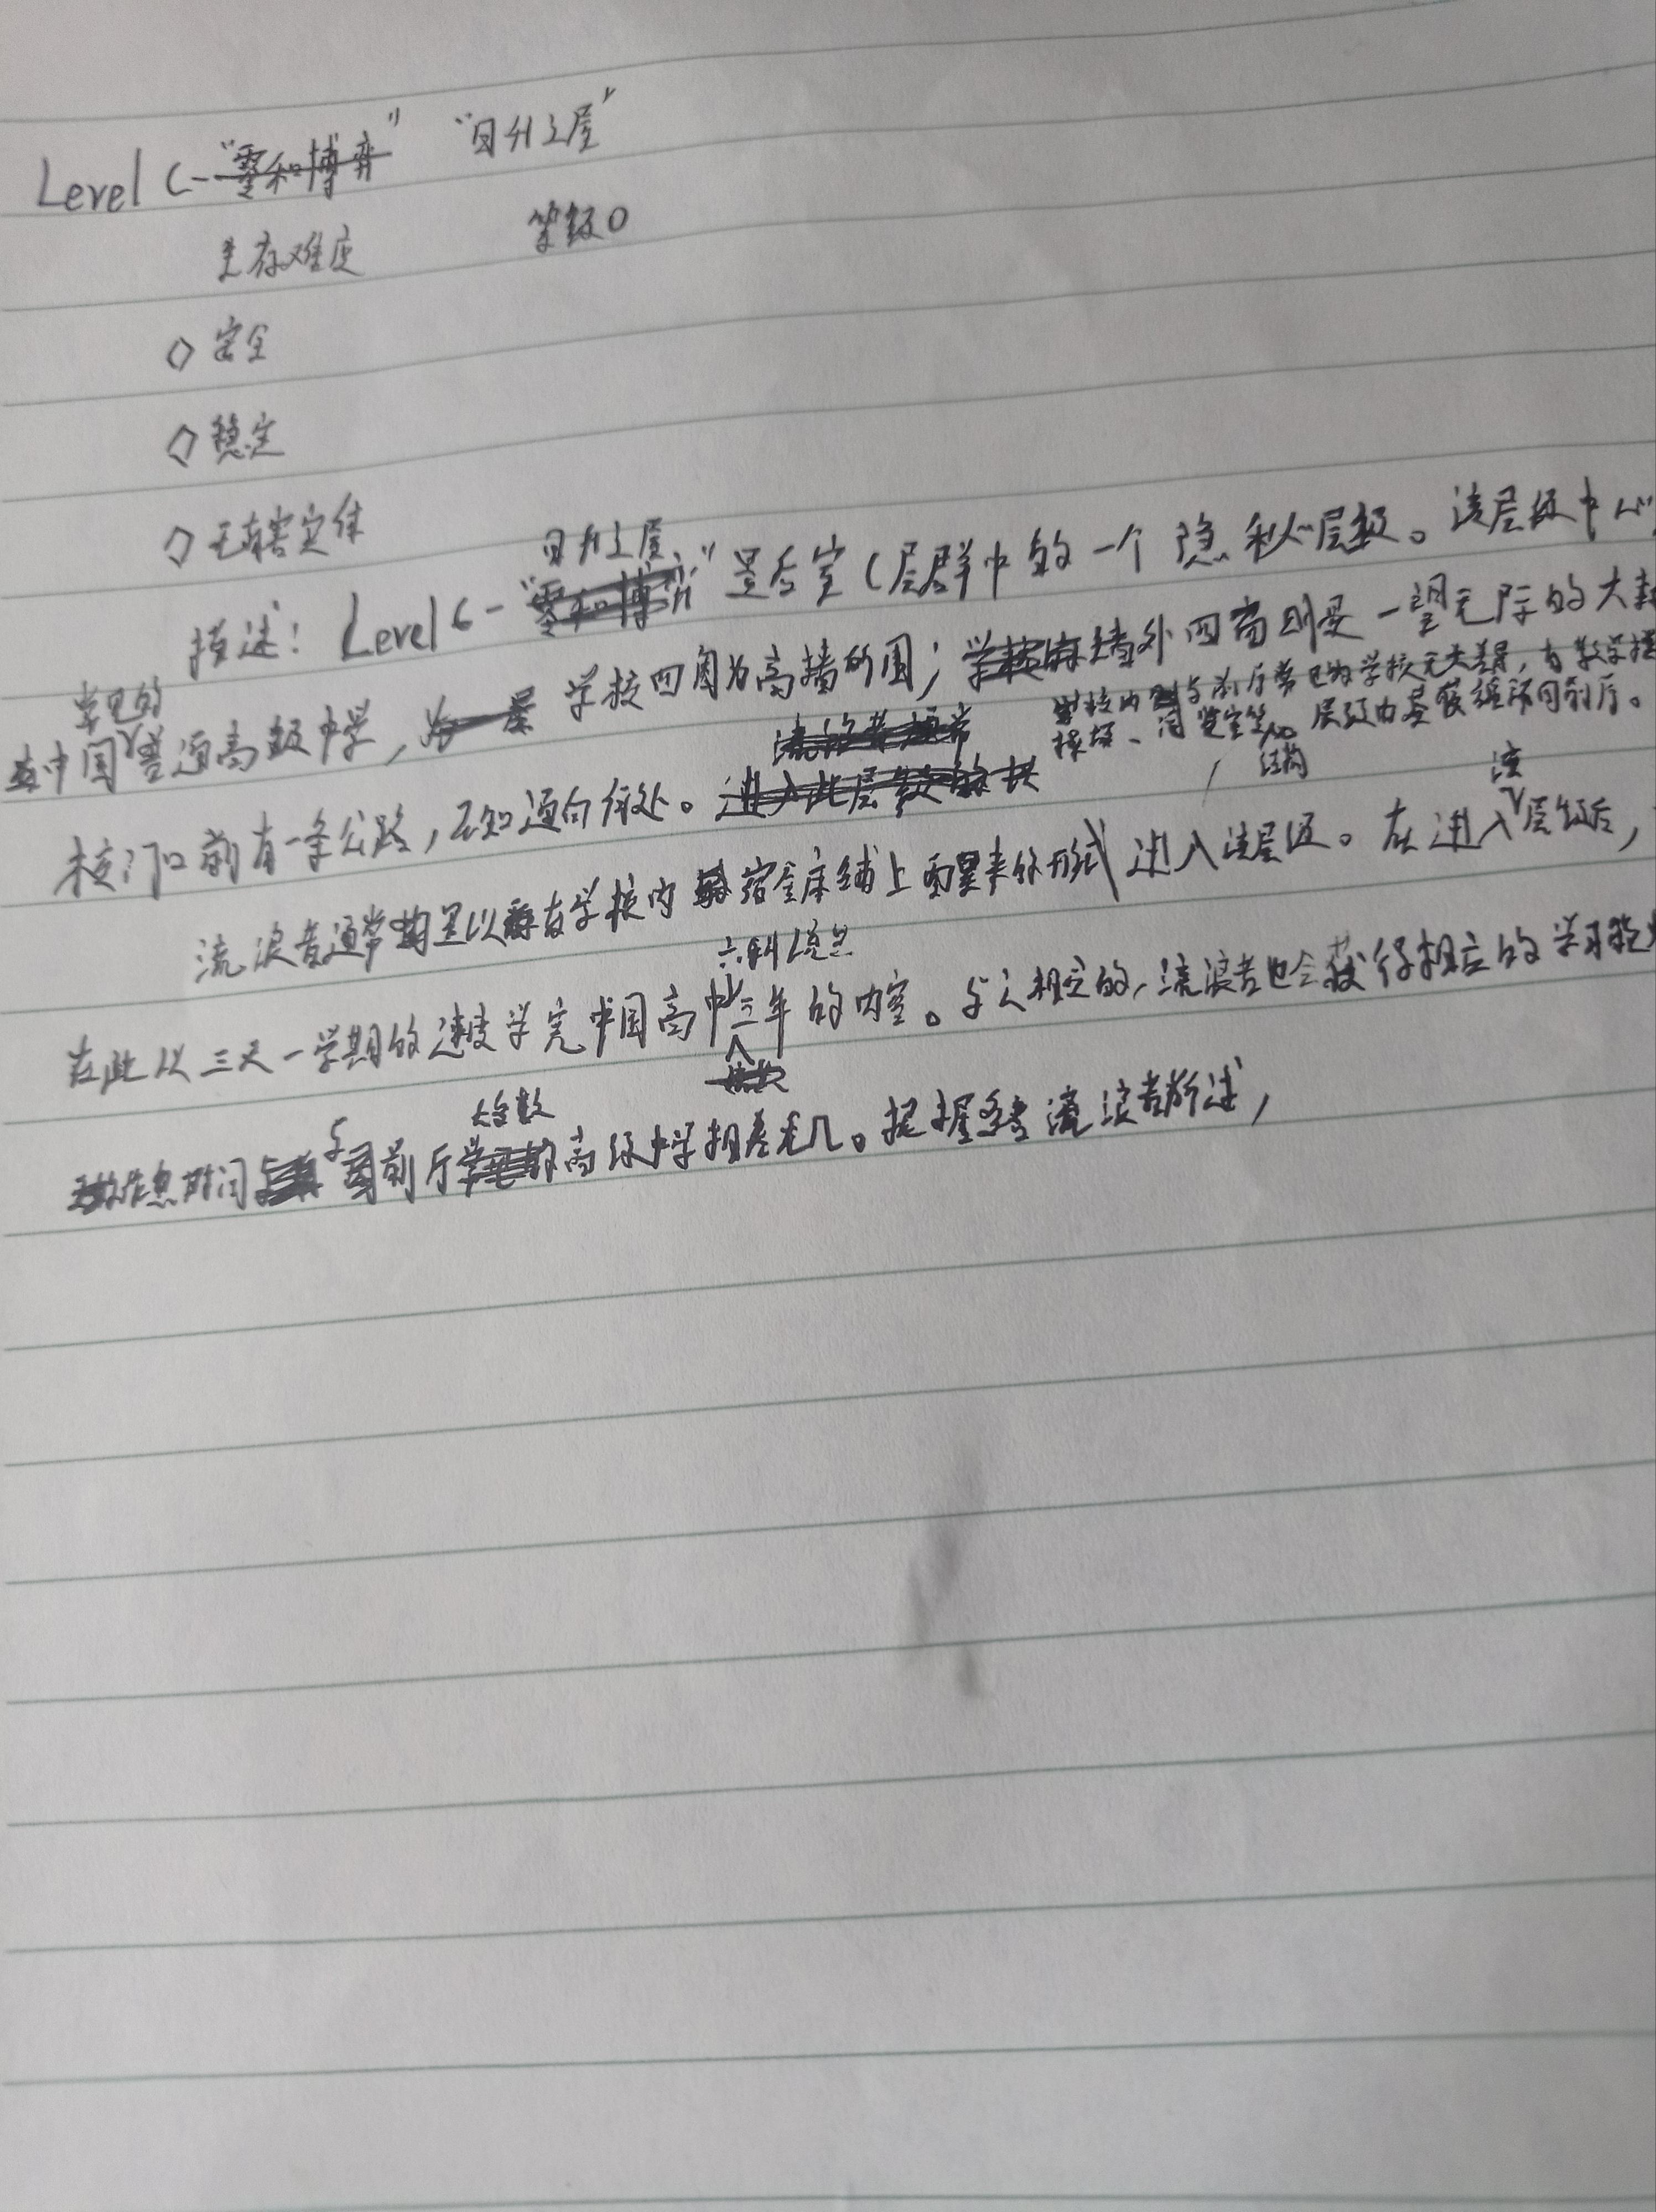 Level C-"零和博弈" "日升之屋"
生存难度 等级0
◇ 安全
◇ 稳定
◇ 无害实体
日升之屋
描述：Level C-"零和博弈"是后室C层群中的一个隐秘层级。该层级中心
常见的
中国普通高级中学，为一是 学校四周为高墙所围；学校的墙外四周则是一望无际的大
学校内与前厅常见的学校无大差异，有教学楼
操场、食堂等 结构 层级内基 同前厅。
流浪者通常
校门口前有一条公路，不知通向何处。进入此层级的
流浪者通常是以在学校内宿舍床铺上醒来的形式进入该层级。在进入该层级后，
六科
在此以三天一学期的速度学完中国高中三年的内容。与之相应的，流浪者也会获得相应的学习
大多数
作息时间与前厅高级中学相差无几。据流浪者所述，